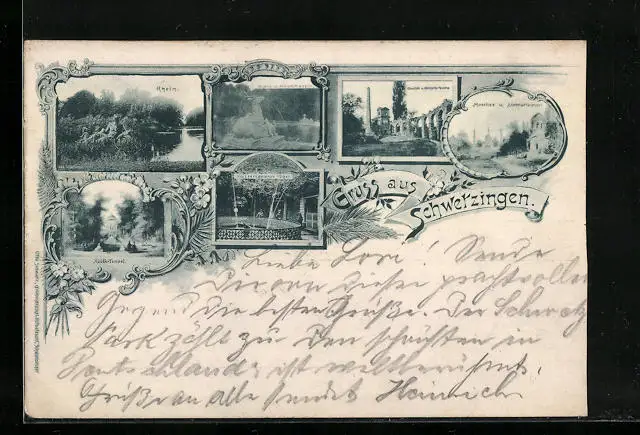 Rhein.
Moschee u. Merkurtempel
Gruss aus
Schwetzingen.
Apollo-Tempel.
Liebe Lore! Sende
Dir aus dieser prachtvollen
Gegend die besten Grüße. Der Schwetz
Park zählt zu den schönsten in
Deutschland & ist weltberühmt.
Grüße an alle sendet Heinrich